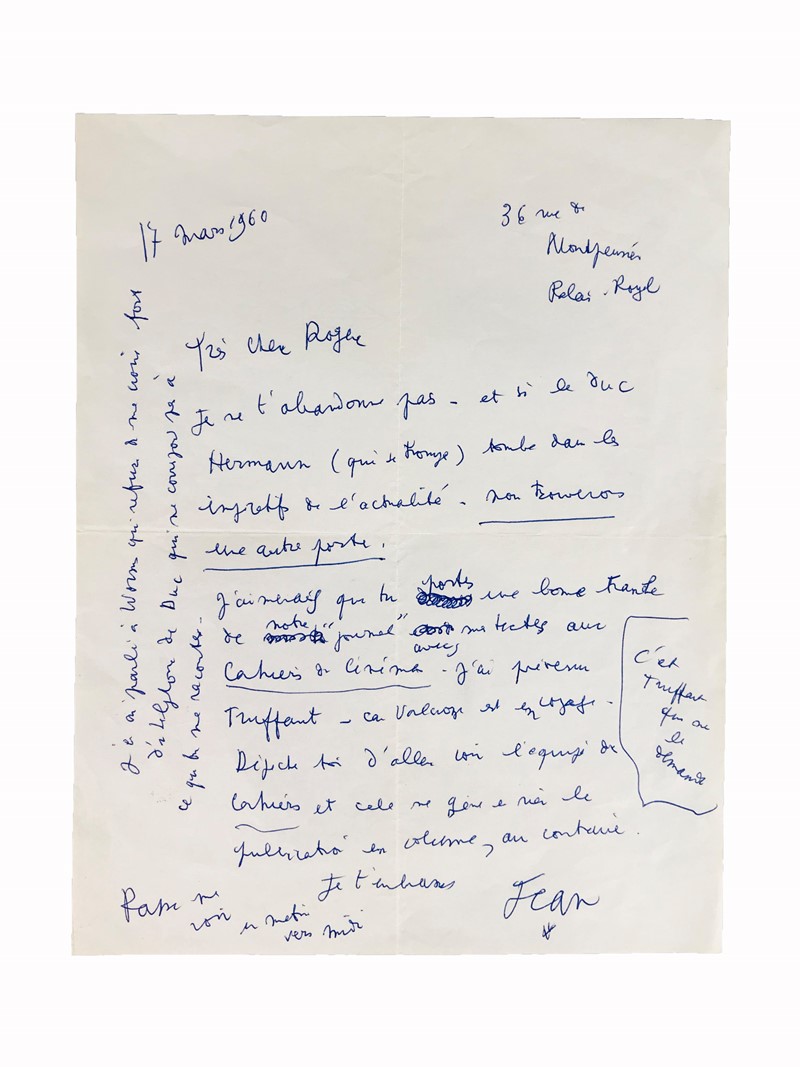 17 mars 1960
36 rue de
Montpensier
Palais-Royal
Très cher Roger
Je ne t'abandonne pas - et si le Duc
Hermann (qui se trompe) tombe dans les
de l'actualité - nous trouverons
une autre porte.
J'aimerais que tu portes une bonne tranche
de notre "journal" avec mes textes aux
Cahiers du Cinéma - J'ai prévenu
Truffaut - car est en voyage -
Dépêche toi d'aller voir l'équipe des
Cahiers et cela ne gêne en rien la
publication en volume, au contraire.
Je t'embrasse
Jean
Passe me
voir un matin
vers midi
C'est
Truffaut
qui me
le
demande
J'en ai parlé à Worms qui refuse de me croire fort
du Duc qui ne comprend pas à
ce qu'il me raconte -